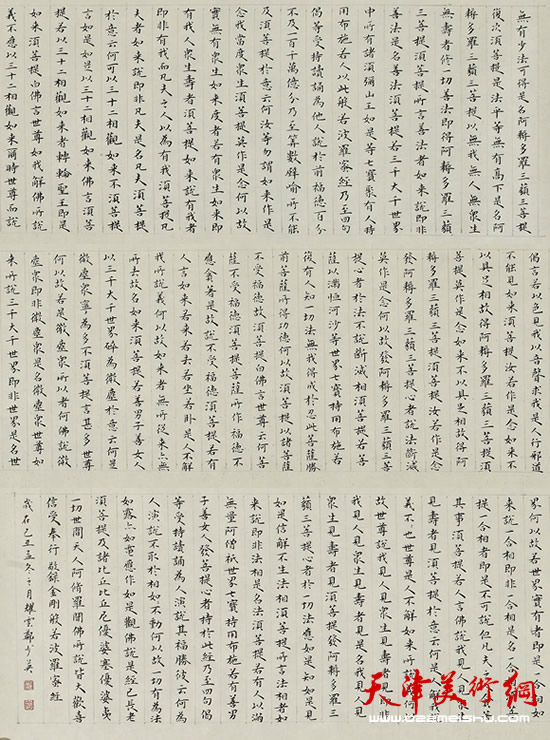 無有少法可得是名阿耨多羅三藐三菩提
復次須菩提是法平等無有高下是名阿
耨多羅三藐三菩提以無我無人無衆生
無壽者修一切善法即得阿耨多羅三藐
三菩提須菩提所言善法者如來說即非
善法是名善法須菩提若三千大千世界
中所有諸須彌山王如是等七寶聚有人持
用布施若人以此般若波羅蜜經乃至四句
偈等受持讀誦為他人說於前福德百分
不及一百千萬億分乃至算數譬喻所不能
及須菩提於意云何汝等勿謂如來作是
念我當度衆生須菩提莫作是念何以故
實無有衆生如來度者若有衆生如來即
有我人衆生壽者須菩提如來說有我者
即非有我而凡夫之人以為有我須菩提凡
夫者如來說即非凡夫是名凡夫須菩提
於意云何可以三十二相觀如來不須菩提
言如是如是以三十二相觀如來佛言須菩
提若以三十二相觀如來者轉輪聖王即是
如來須菩提白佛言世尊如我解佛所說
義不應以三十二相觀如來爾時世尊而說
偈言若以色見我以音聲求我是人行邪道
不能見如來須菩提汝若作是念如來不
以具足相故得阿耨多羅三藐三菩提須
菩提莫作是念如來不以具足相故得阿
耨多羅三藐三菩提須菩提汝若作是念
發阿耨多羅三藐三菩提心者說法斷滅
莫作是念何以故發阿耨多羅三藐三菩
提心者於法不說斷滅相須菩提若菩
薩以滿恒河沙等世界七寶持用布施若
復有人知一切法無我得成於忍此菩薩勝
前菩薩所得功德何以故須菩提以諸菩薩
不受福德故須菩提白佛言世尊云何菩
薩不受福德須菩提菩薩所作福德不
應貪著是故說不受福德須菩提若有
人言如來若來若去若坐若卧是人不解
我所說義何以故如來者無所從來亦無
所去故名如來須菩提若善男子善女人
以三千大千世界碎為微塵於意云何是
微塵衆寧為多不須菩提言甚多世尊
何以故若是微塵衆所以者何佛說微
塵衆即非微塵衆是名微塵衆世尊如
來所說三千大千世界即非世界是名世
界何以故若世界實有者即是一合相如
來說一合相即非一合相是名一合相須菩
提一合相者即是不可說但凡夫之人貪著
其事須菩提若人言佛說我見人見衆生
見壽者見須菩提於意云何是人解我所說
義不不也世尊是人不解如來所說義何以
故世尊說我見人見衆生見壽者見即非
我見人見衆生見壽者見是名我見人見
衆生見壽者見須菩提發阿耨多羅三
藐三菩提心者於一切法應如是知如是見
如是信解不生法相須菩提所言法相者如
來說即非法相是名法相須菩提若有人以滿
無量阿僧祇世界七寶持用布施若有善男
子善女人發菩提心者持於此經乃至四句偈
等受持讀誦為人演說其福勝彼云何為
人演說不取於相如如不動何以故一切有為法
如夢幻泡影
如露亦如電應作如是觀佛說是經已長老
須菩提及諸比丘比丘尼優婆塞優婆夷
一切世間天人阿脩羅聞佛所說皆大歡喜
信受奉行 敬錄金剛般若波羅蜜經
歲在己丑孟冬之月耀雲鄭少英
天津美術網
www.tjmeishuwang.com